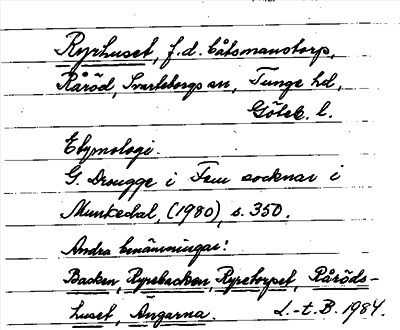 Ryrhuset, f.d. båtsmanstorp,
Råröd, Svarteborgs sn, Tunge hd,
Göteb. l.
Etymologi.
G. Drougge i Fem socknar i
Munkedal, (1980), s. 350.
Andra benämningar:
Backen, Ryrebacken, Ryretorpet, Råröds-
huset, Angarna.
L.-t. B. 1984.